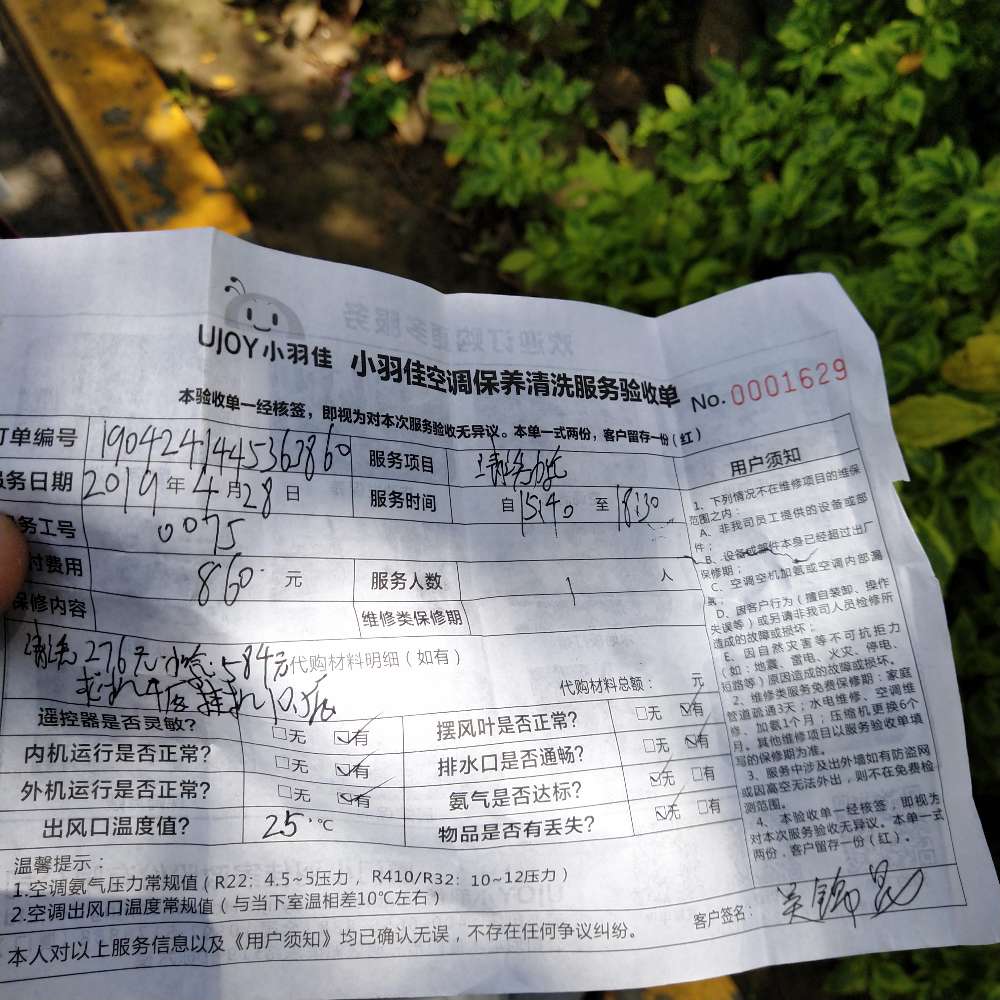 UJOY小羽佳 小羽佳空调保养清洗服务验收单 No.0001629
本验收单一经核签，即视为对本次服务验收无异议。本单一式两份，客户留存一份（红）
订单编号 1904241445363860 服务项目 清洗加氨
服务日期 2019年4月28日 服务时间 自15:40至18:30
务工号 0075
付费用 860元 服务人数 1人
保修内容 维修类保修期
清洗276元 584元代购材料明细（如有）
代购材料总额： 元
遥控器是否灵敏？ □无 ☑有 摆风叶是否正常？ □无 ☑有
内机运行是否正常？ □无 ☑有 排水口是否通畅？ □无 ☑有
外机运行是否正常？ □无 ☑有 氨气是否达标？ ☑无 □有
出风口温度值？ 25℃ 物品是否有丢失？ ☑无 □有
温馨提示：
1.空调氨气压力常规值（R22：4.5~5压力，R410/R32：10~12压力）
2.空调出风口温度常规值（与当下室温相差10℃左右）
本人对以上服务信息以及《用户须知》均已确认无误，不存在任何争议纠纷。
用户须知
1、下列情况不在维修项目的维保
范围之内：
A、非我司员工提供的设备或部
件；
B、设备或部件本身已经超过出厂
保修期；
C、空调空机加氨或空调内部漏
氨；
D、因客户行为（擅自装卸、操作
失误等）或另请非我司人员检修所
造成的故障或损坏；
E、因自然灾害等不可抗拒力
（如：地震、雷电、火灾、停电、
短路等）原因造成的故障或损坏。
2、维修类服务免费保修期：家庭
管道疏通3天；水电维修、空调维
修、加氨1个月；压缩机更换6个
月。其他维修项目以服务验收单填
写的保修期为准。
3、服务中涉及出外墙如有防盗网
或因高空无法外出，则不在免费检
测范围。
4、本验收单一经核签，即视为
对本次服务验收无异议。本单一式
两份，客户留存一份（红）。
客户签名：
欢迎订购更多服务